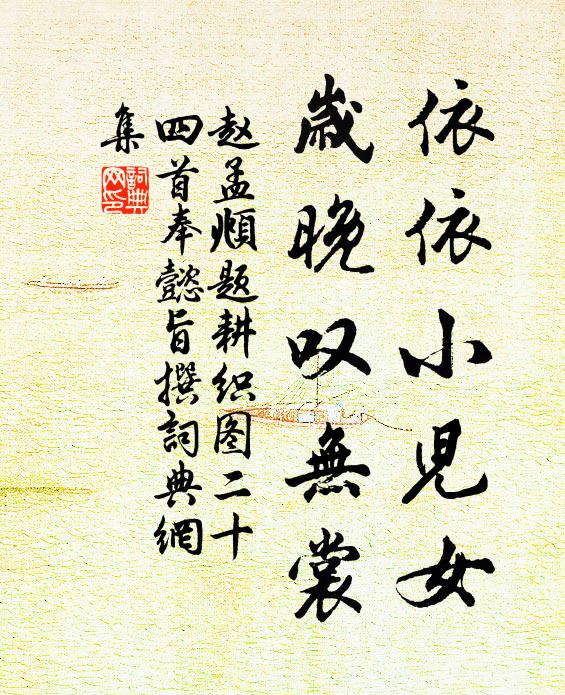 依依小児女
歲晚叹無裳
赵孟頫题耕织图二十
四首奉懿旨撰詞典網
集
詞典
网印